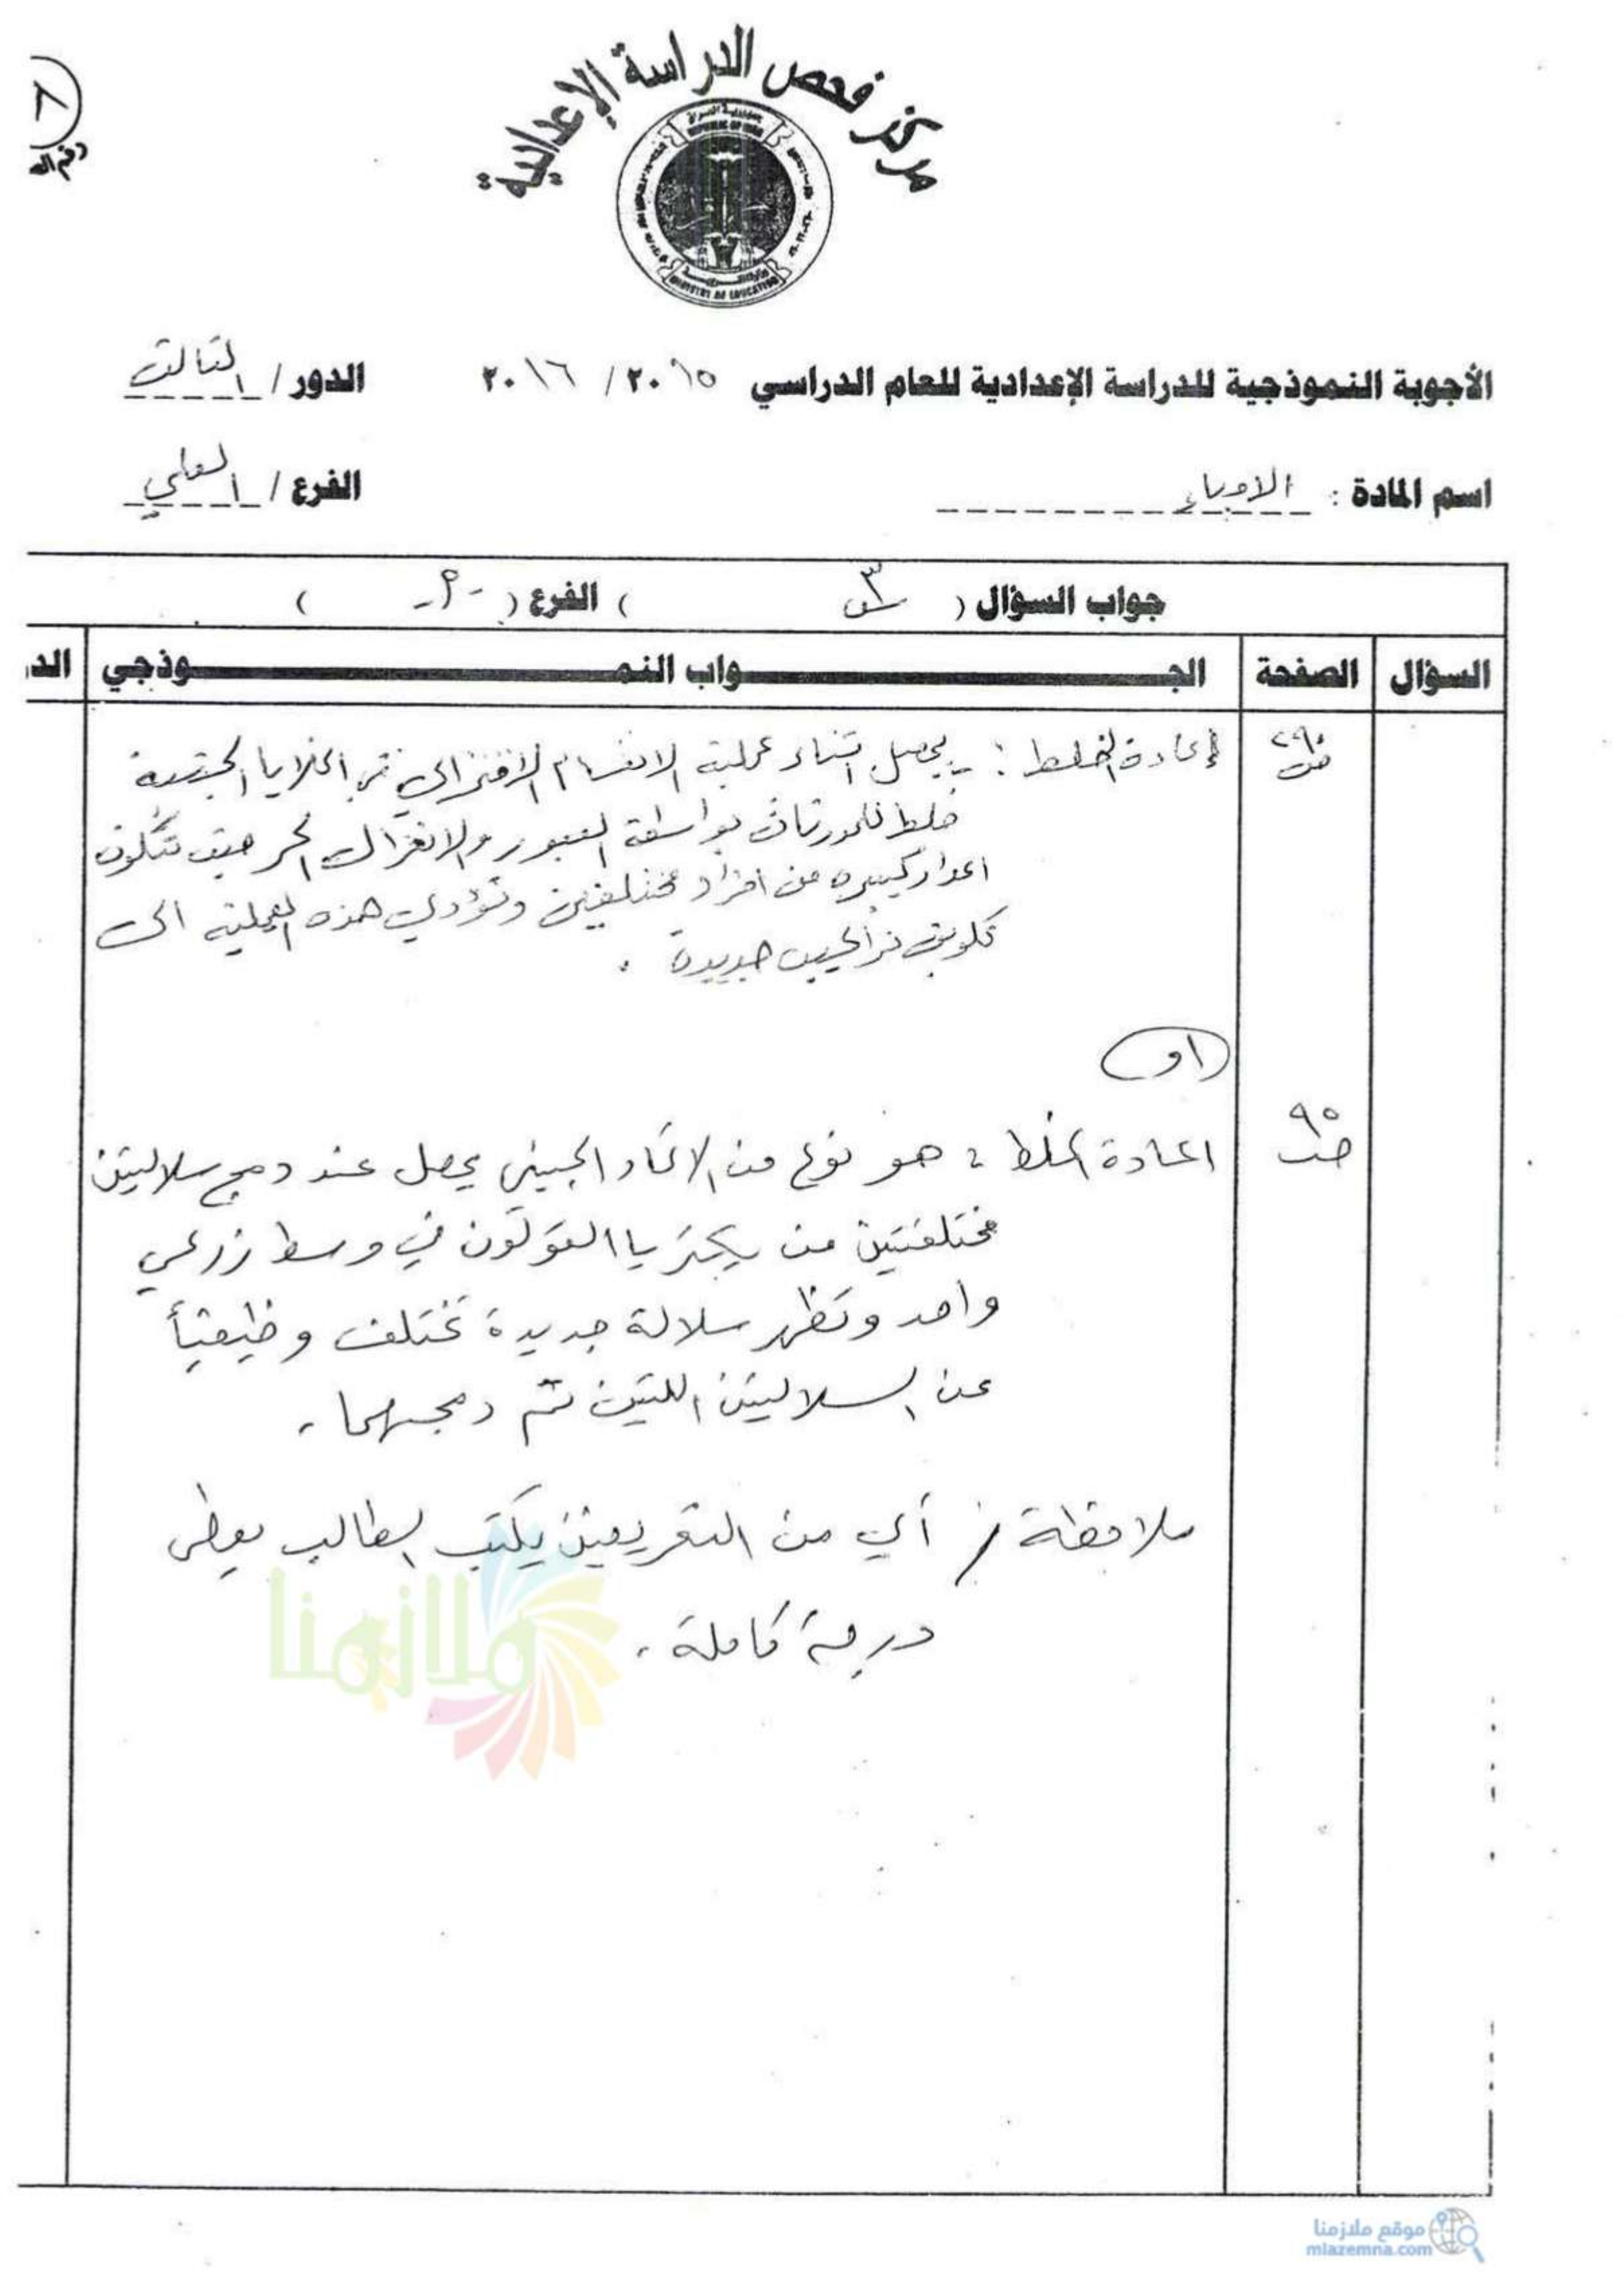 مركز فحص الدراسة الإعدادية
٨
REPUBLIC OF IRAQ
MINISTRY OF EDUCATION
الأجوبة النموذجية للدراسة الإعدادية للعام الدراسي ٢٠١٥ / ٢٠١٦ الدور / الثالث
اسم المادة : الاحياء الفرع / العلمي
جواب السؤال ( س٣ ) الفرع ( - م - )
السؤال الصفحة الجـواب النمـوذجي الد
ص٢٩٠
إعادة الخلط : يحصل اثناء عملية الانقسام الاختزالي في الخلايا الجنسية
خلط للمورثات بواسطة العبور والانعزال الحر حيث تتكون
اعداد كبيره من افراد مختلفين وتؤدي هذه العملية الى
تكوين تراكيب جديدة .
او
ص٩٥
اعادة الخلط : هو نوع من الاتحاد الجيني يحصل عند دمج سلاليتين
مختلفتين من بكتريا القولون في وسط زرعي
واحد وتظهر سلالة جديدة تختلف وظيفياً
عن السلاليتين اللتين تم دمجهما .
ملاحظة / أي من التعريفين يكتب الطالب يعطى
درجة كاملة .
ملازمنا
موقع ملازمنا
mlazemna.com